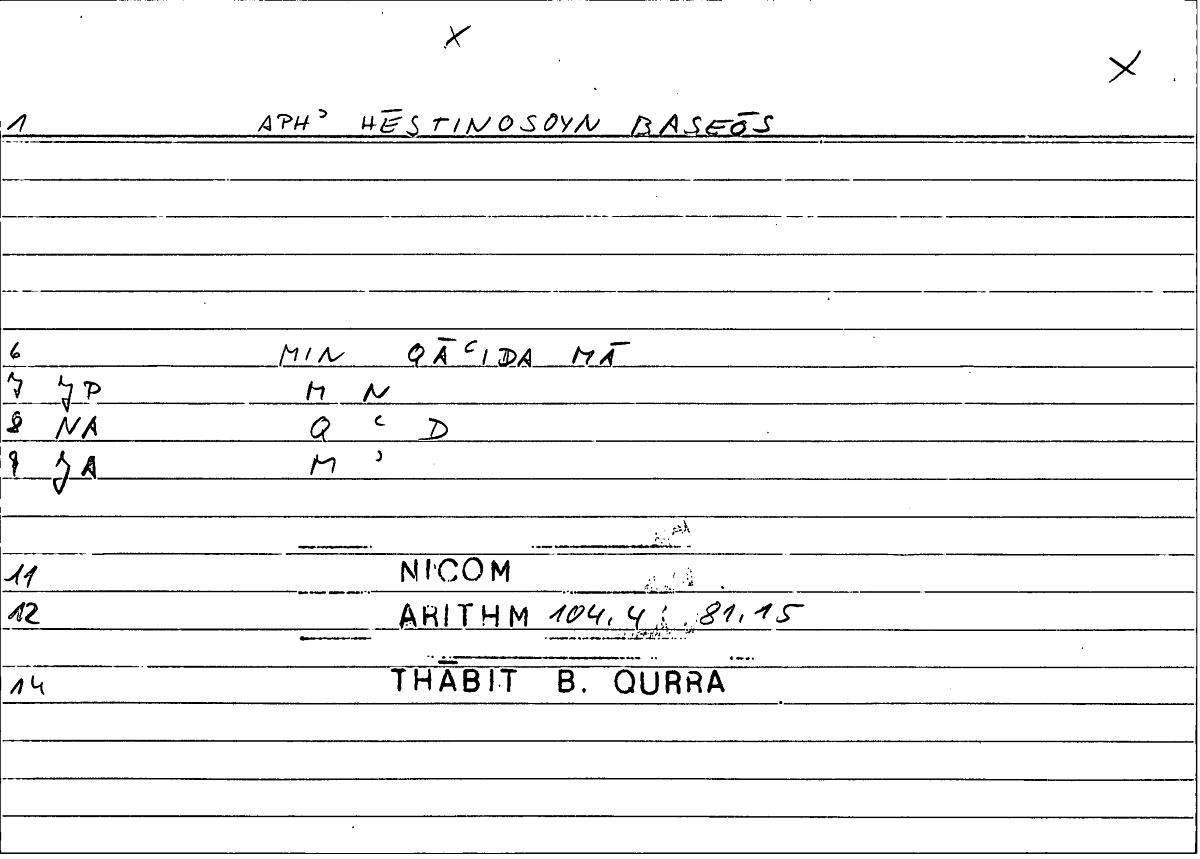 X
X
1 APHʾ HĒSTINOSOYN BASEŌS
6 MIN QĀʿIDA MĀ
7 JP M N
8 NA Q ʿ D
9 JA M ʾ
11 NICOM
12 ARITHM 104,4 ; 81,15
14 THĀBIT B. QURRA